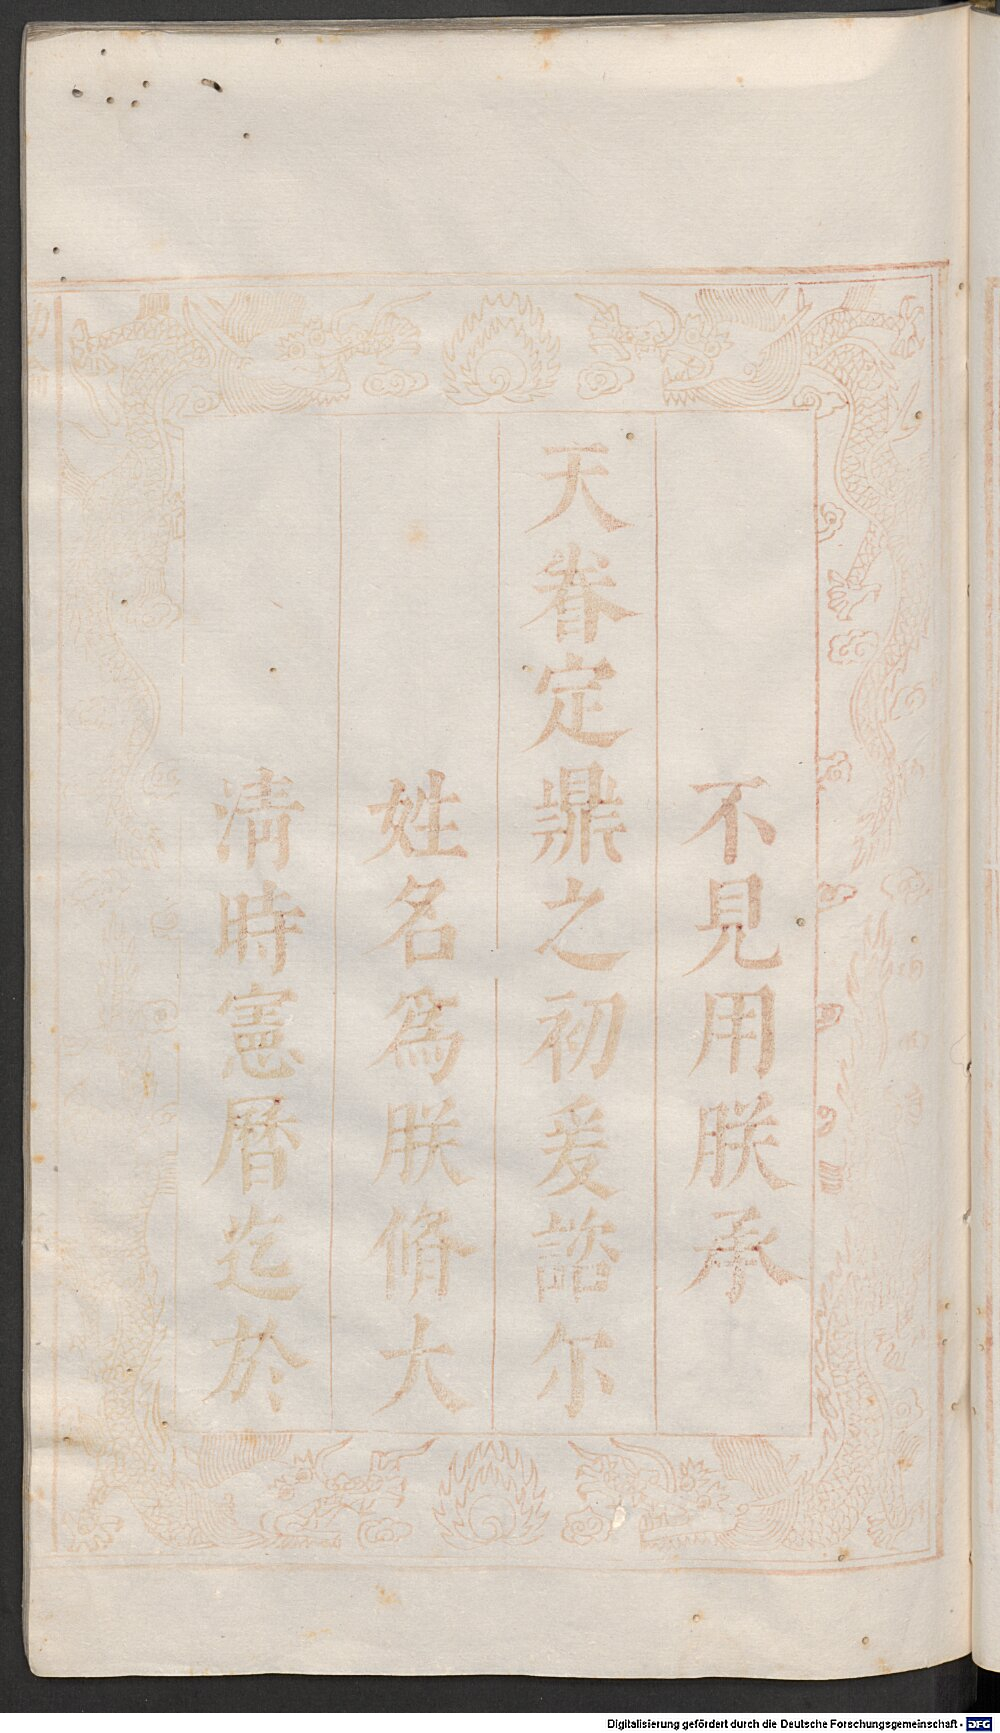 不見用朕承
天眷定鼎之初爰諮尔
姓名爲朕脩大
清時憲曆迄於
Digitalisierung gefördert durch die Deutsche Forschungsgemeinschaft - DFG